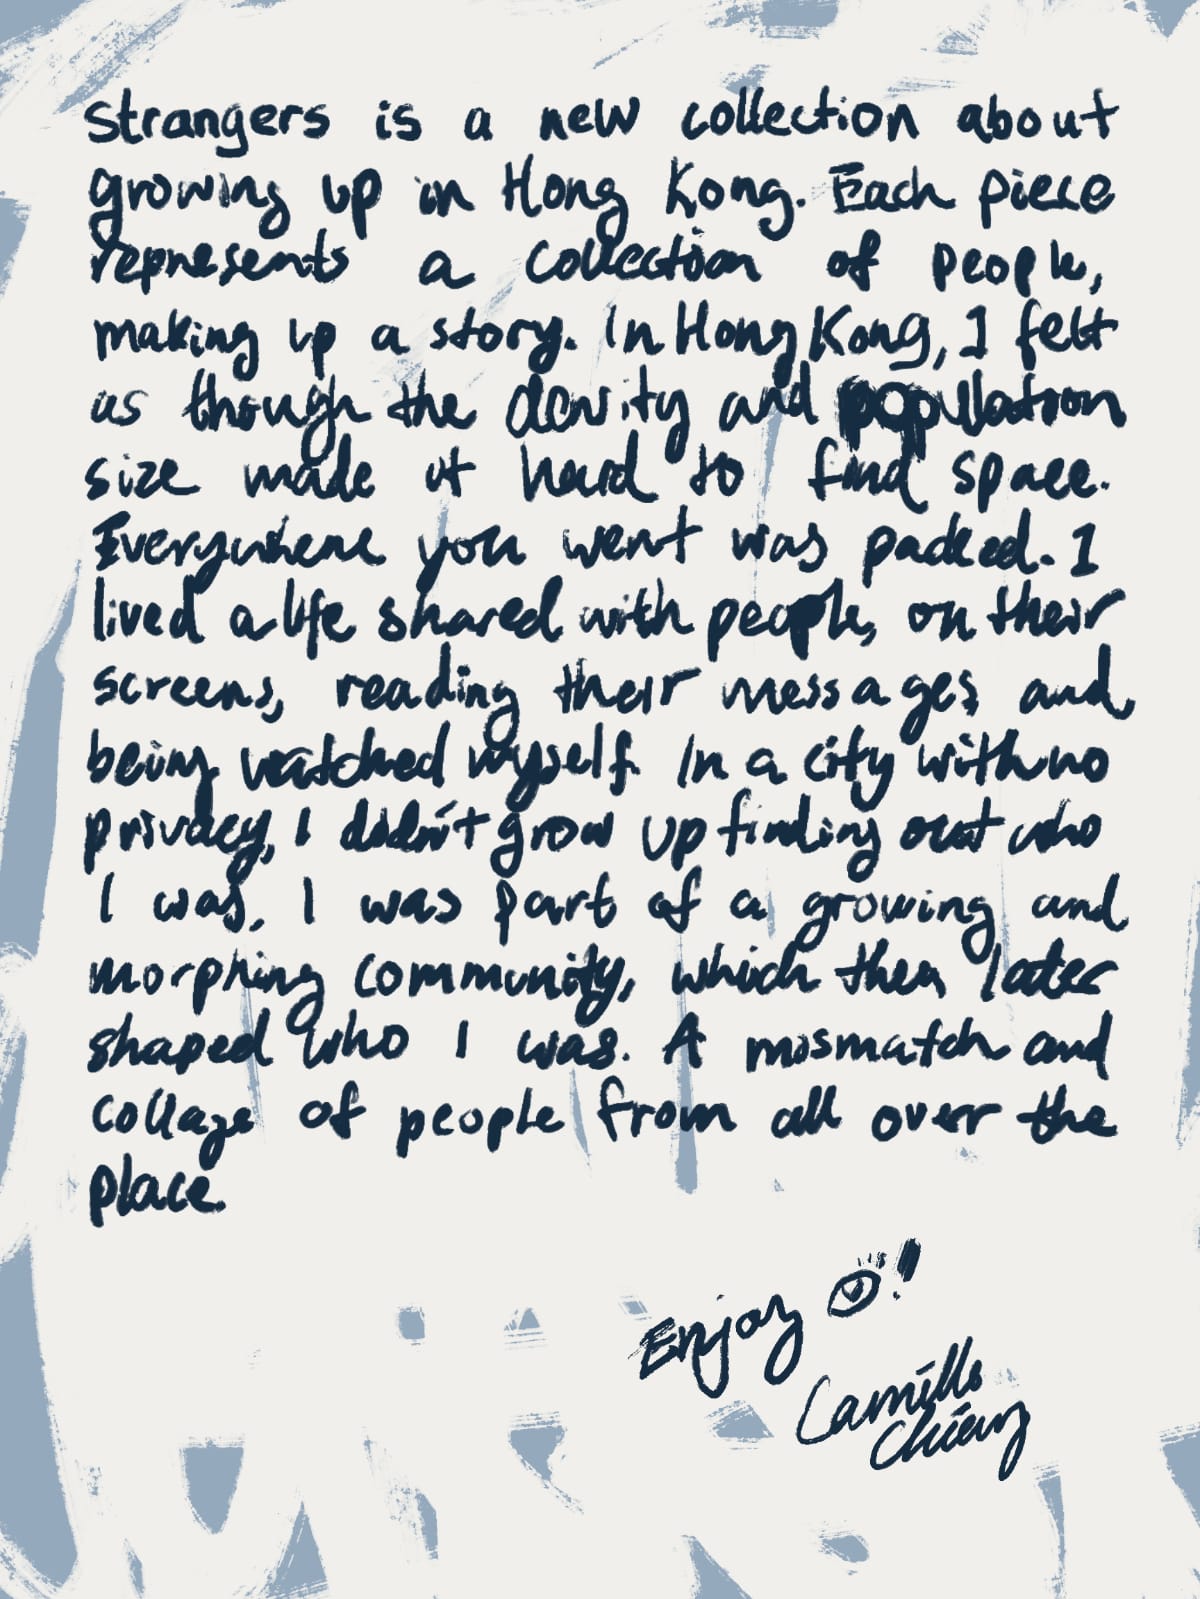 Strangers is a new collection about
growing up in Hong Kong. Each piece
represents a collection of people,
making up a story. In Hong Kong, I felt
as though the density and population
size made it hard to find space.
Everywhere you went was packed. I
lived a life shared with people, on their
screens, reading their messages and
being watched myself. In a city with no
privacy, I didn't grow up finding out who
I was. I was part of a growing and
morphing community, which then later
shaped who I was. A mismatch and
collage of people from all over the
place.
Enjoy !
Camille